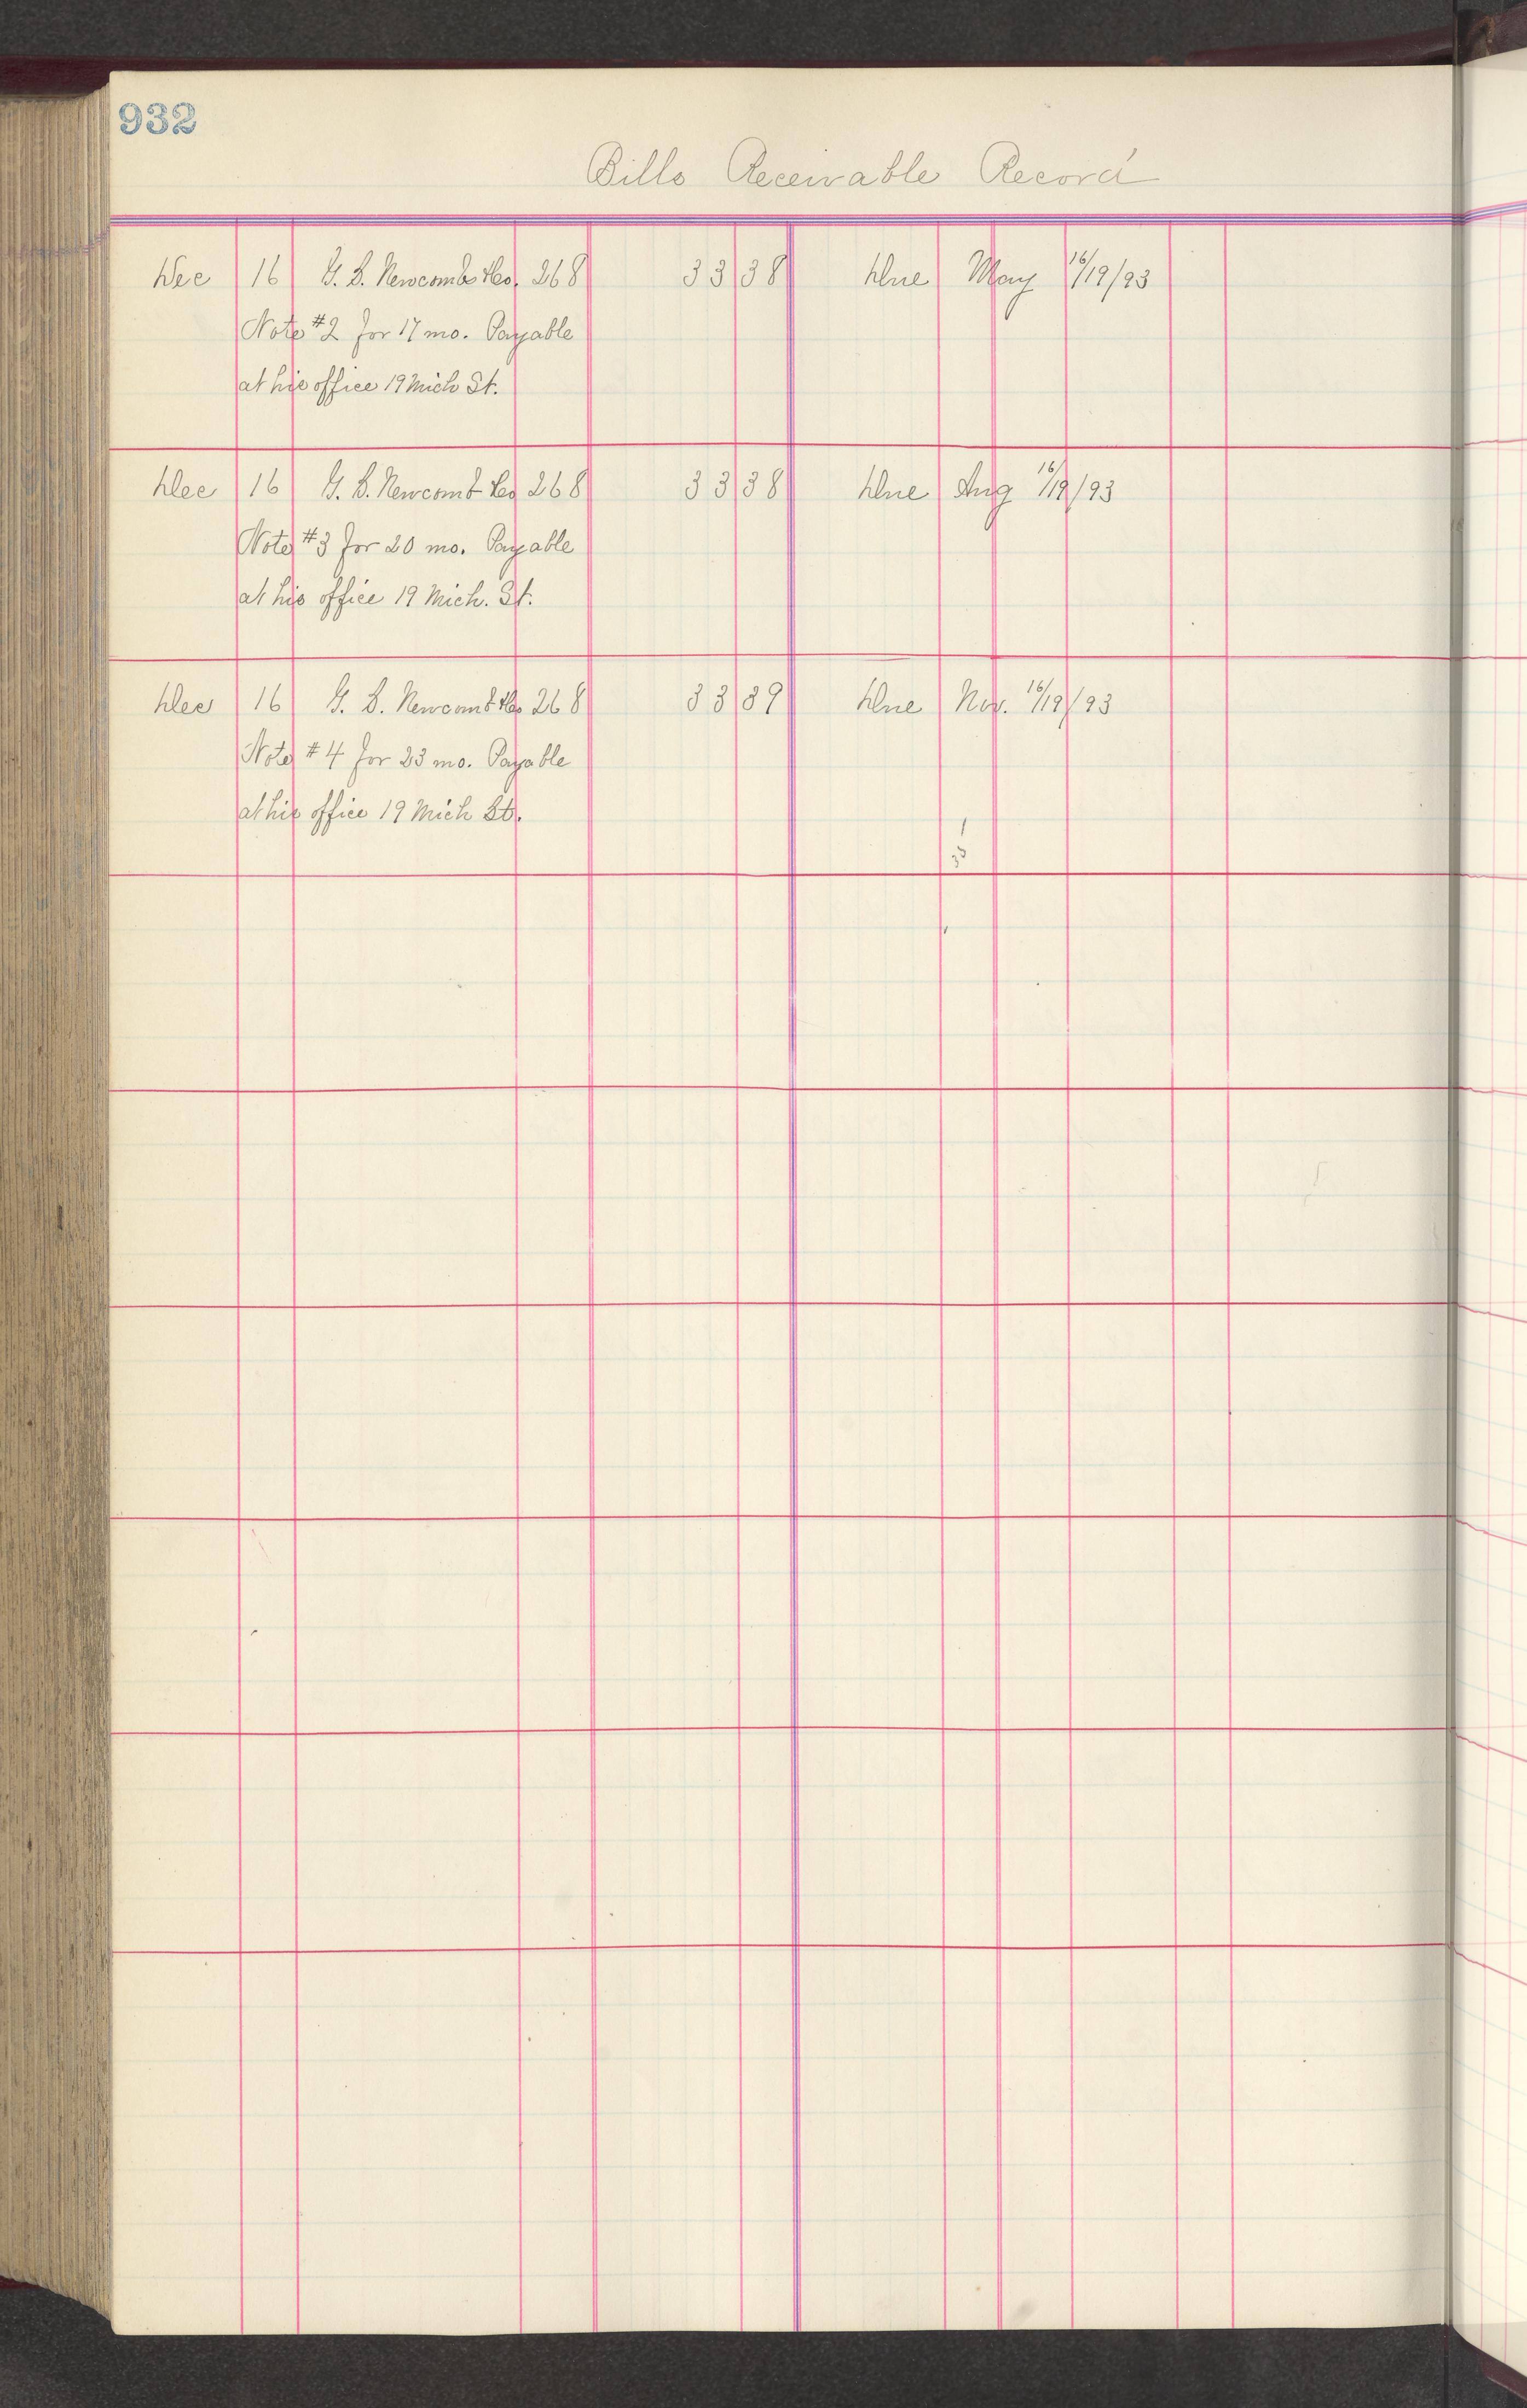 932
Bills Receivable Record
Dec 16 G. S. Newcomb &Co. 268 33 38 Due May 16/19/93
Note #2 for 17 mo. Payable
at his office 19 Mich St.
Dec 16 G. S. Newcomb &Co 268 33 38 Due Aug 16/19/93
Note #3 for 20 mo. Payable
at his office 19 Mich. St.
Dec 16 G. S. Newcomb &Co 268 33 39 Due Nov. 16/19/93
Note #4 for 23 mo. Payable
at his office 19 Mich St.